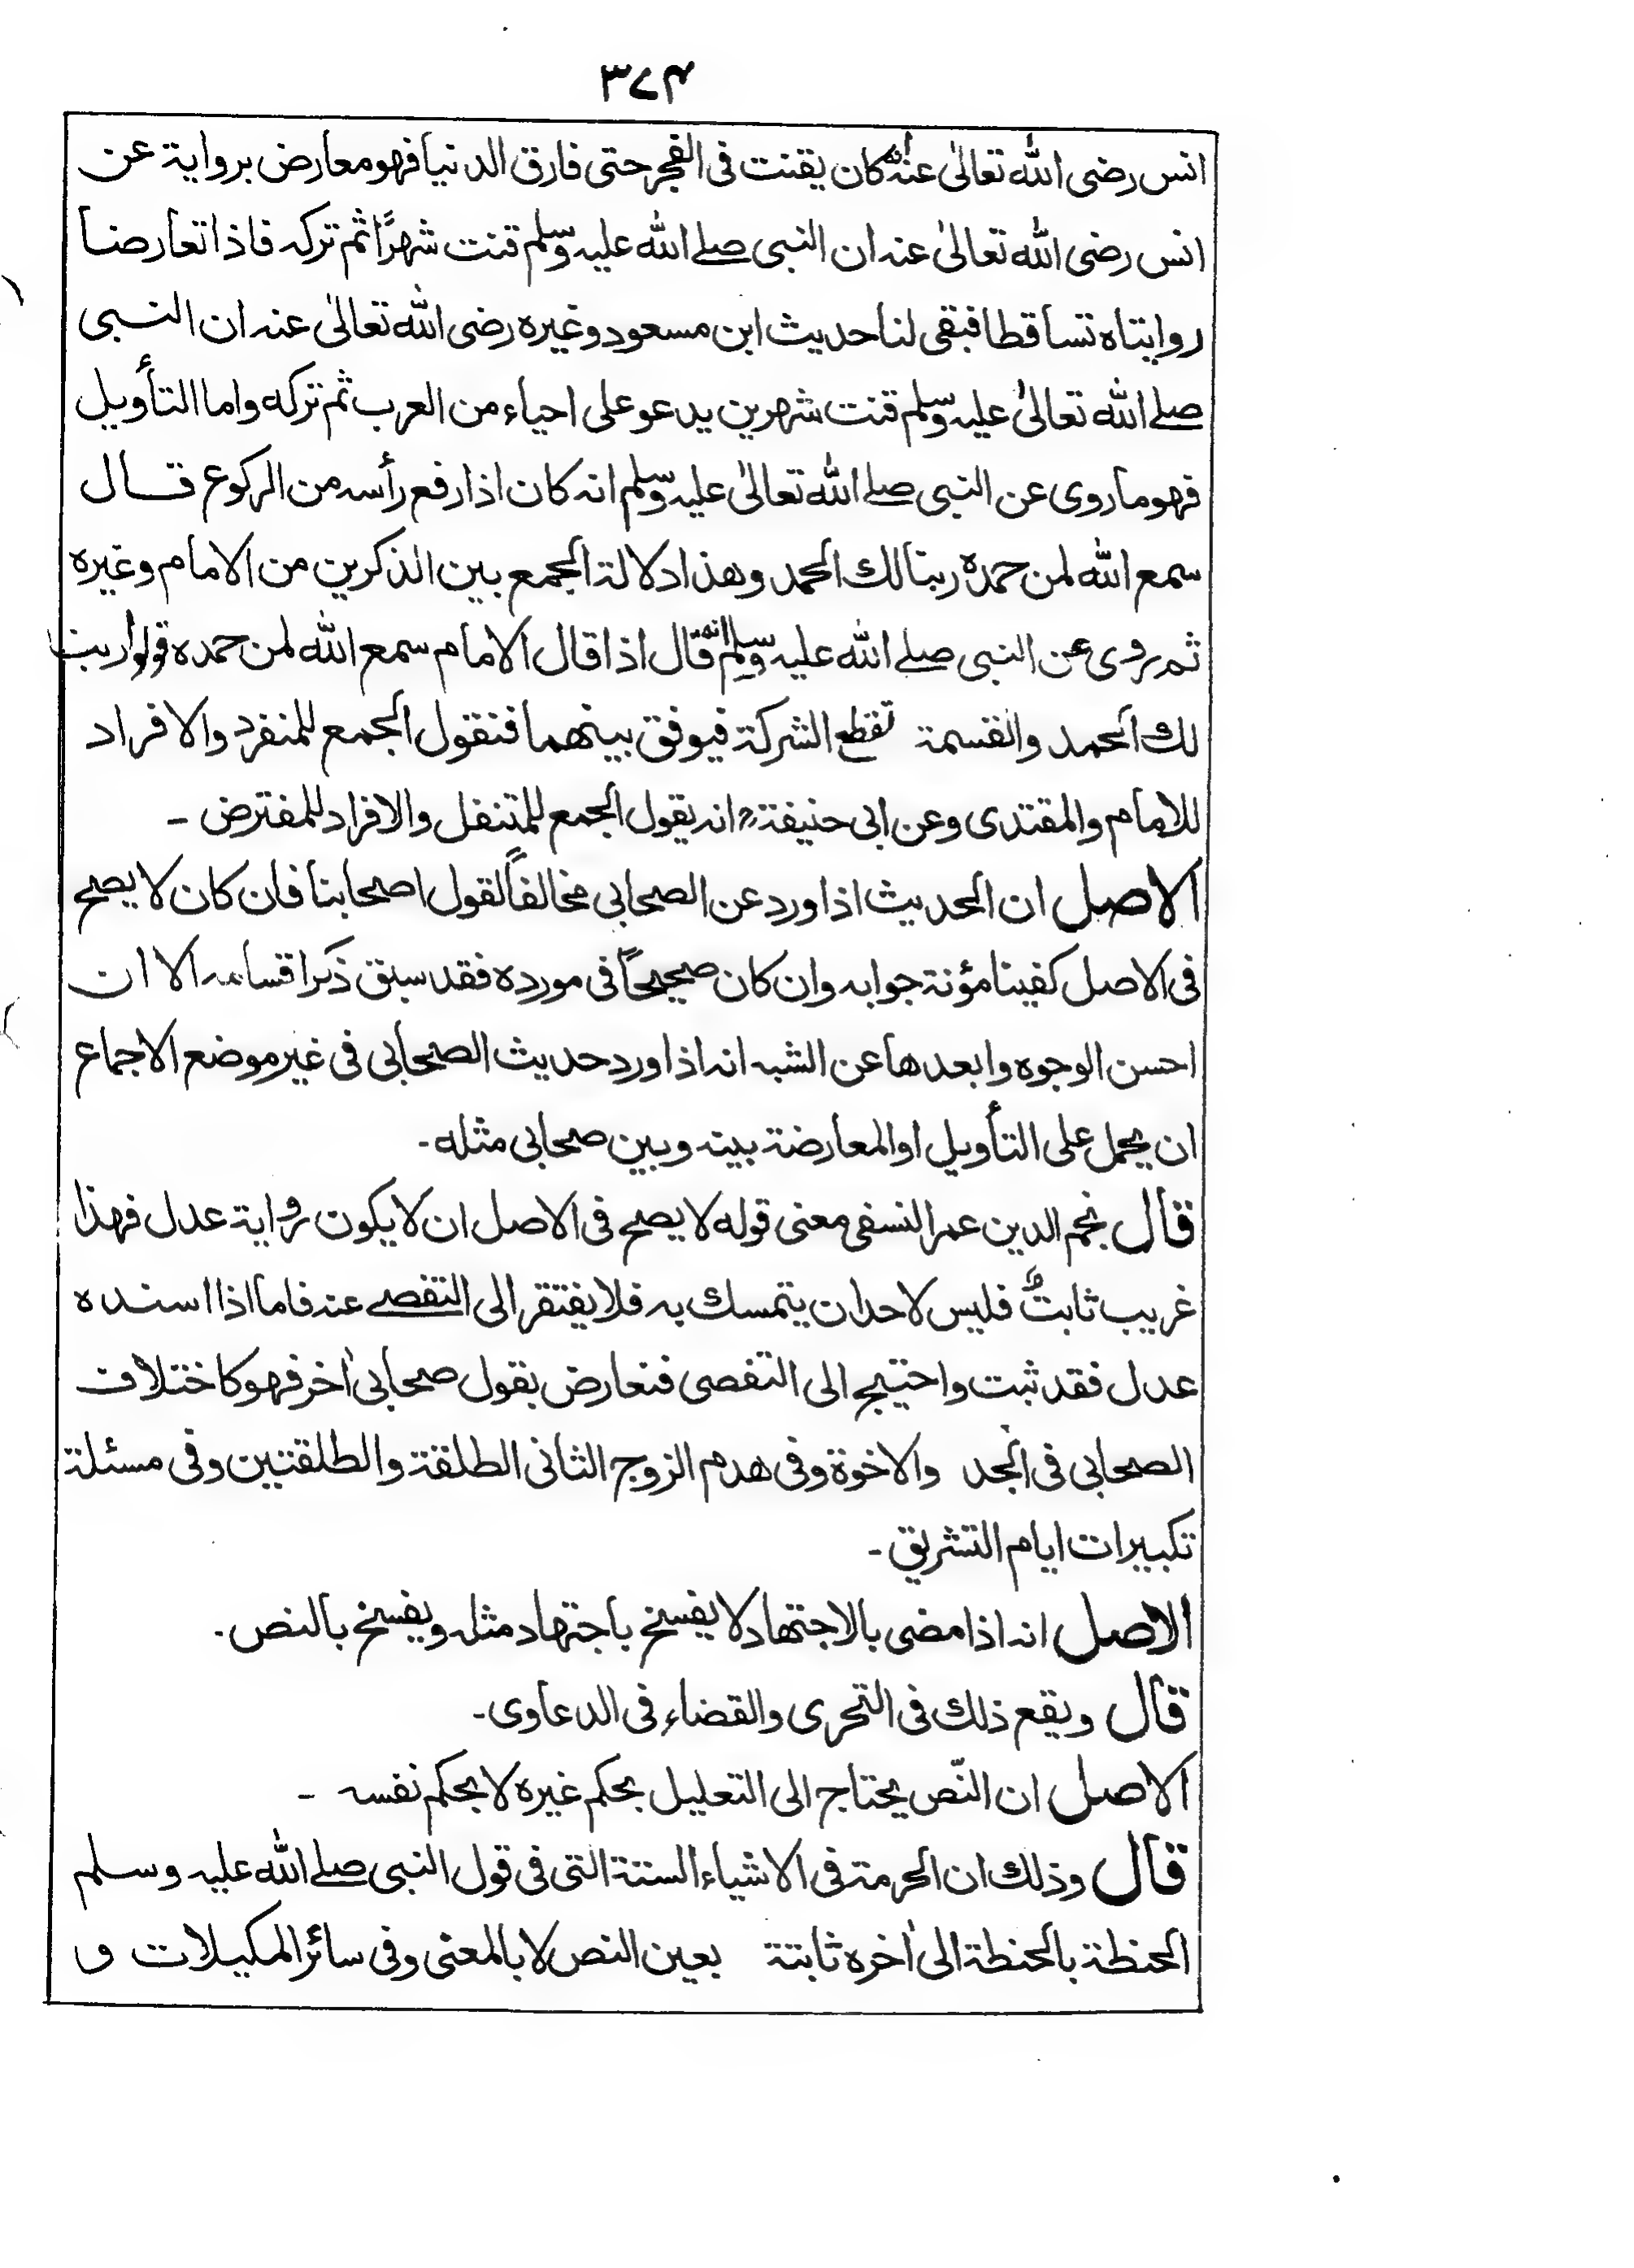 ٣٧٤
انس رضی اللہ تعالٰی عنہ انہ کان یقنت فی الفجر حتی فارق الدنیا فهو معارض بروایة عن
انس رضی اللہ تعالٰی عنہ ان النبی صلے اللہ علیہ وسلم قنت شهرًا ثم ترکہ فاذا تعارضا
روایتاہ تساقطا فبقی لنا حدیث ابن مسعود وغیرہ رضی اللہ تعالٰی عنہ ان النبی
صلے اللہ تعالٰی علیہ وسلم قنت شهرین یدعو علی احیاء من العرب ثم ترکه واما التأویل
فهو ما روی عن النبی صلے اللہ تعالٰی علیہ وسلم انہ کان اذا رفع رأسہ من الرکوع قال
سمع اللہ لمن حمدہ ربنا لك الحمد وهذا دلالة الجمع بین الذکرین من الامام وغیرہ
ثم روی عن النبی صلے اللہ علیہ وسلم انہ قال اذا قال الامام سمع اللہ لمن حمدہ قولوا ربنا
لك الحمد والقسمة تقطع الشرکة فیوفق بینهما فنقول الجمع للمنفرد والافراد
للامام والمقتدی وعن ابی حنیفة انہ یقول الجمع للمتنفل والافراد للمفترض ـ
الاصل ان الحدیث اذا ورد عن الصحابی مخالفًا لقول اصحابنا فان کان لا یصح
فی الاصل کفینا مؤنة جوابہ وان کان صحیحًا فی موردہ فقد سبق ذکر اقسامہ الا ان
احسن الوجوہ وابعدها عن الشبہ انہ اذا ورد حدیث الصحابی فی غیر موضع الاجماع
ان یحمل علی التأویل او المعارضة بینہ وبین صحابی مثله ـ
قال نجم الدین عمر النسفی معنی قوله لا یصح فی الاصل ان لا یکون روایة عدل فهذا
غریب ثابت فلیس لاحد ان یتمسك بہ فلا یفتقر الی التفصے عنہ فاما اذا اسندہ
عدل فقد ثبت واحتیج الی التفصی فنعارض بقول صحابی اٰخر فهو کاختلاف
الصحابی فی الجد والاخوة وفی هدم الزوج الثانی الطلقة والطلقتین وفی مسئلة
تکبیرات ایام التشریق ـ
الاصل انہ اذا مضی بالاجتهاد لا یفسخ باجتهاد مثلہ ویفسخ بالنص ـ
قال ویقع ذلك فی التحری والقضاء فی الدعاوی ـ
الاصل ان النّص یحتاج الی التعلیل بحکم غیرہ لا بحکم نفسہ ـ
قال وذلك ان الحرمة فی الاشیاء الستة التی فی قول النبی صلے اللہ علیہ وسلم
الحنطة بالحنطة الی اٰخرہ ثابتة بعین النص لا بالمعنی وفی سائر المکیلات و